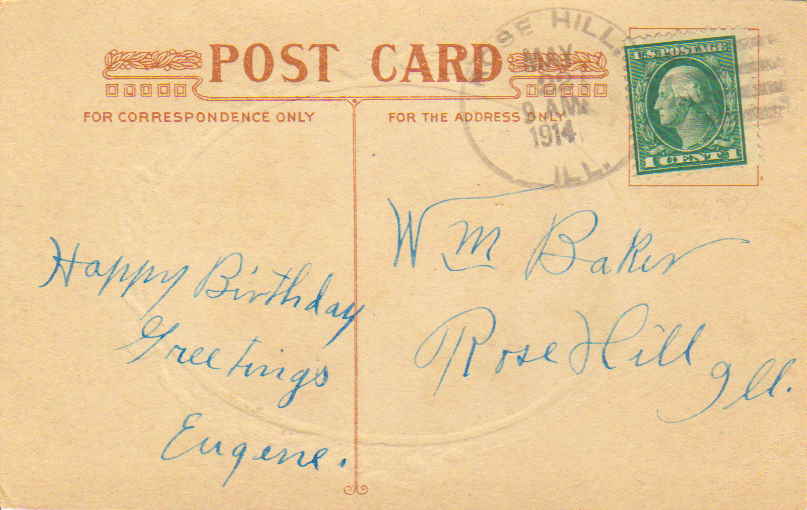 POST CARD
FOR CORRESPONDENCE ONLY
FOR THE ADDRESS ONLY
ROSE HILL,
MAY
9 A.M.
1914
ILL.
U.S. POSTAGE
1 CENT 1
Happy Birthday
Greetings
Eugene.
Wm Baker
Rose Hill
Ill.